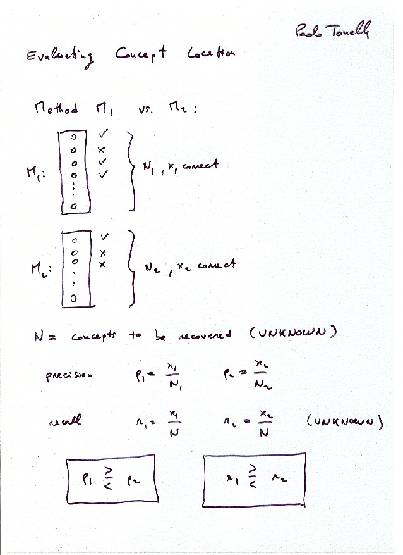 Paolo Tonella
Evaluating Concept Location
Method M1 vs. M2:
M1: N1, x1 correct
M2: N2, x2 correct
N = concepts to be recovered (UNKNOWN)
precision p1 = x1/N1 p2 = x2/N2
recall r1 = x1/N r2 = x2/N (UNKNOWN)
p1 ≷ p2 x1 ≷ x2